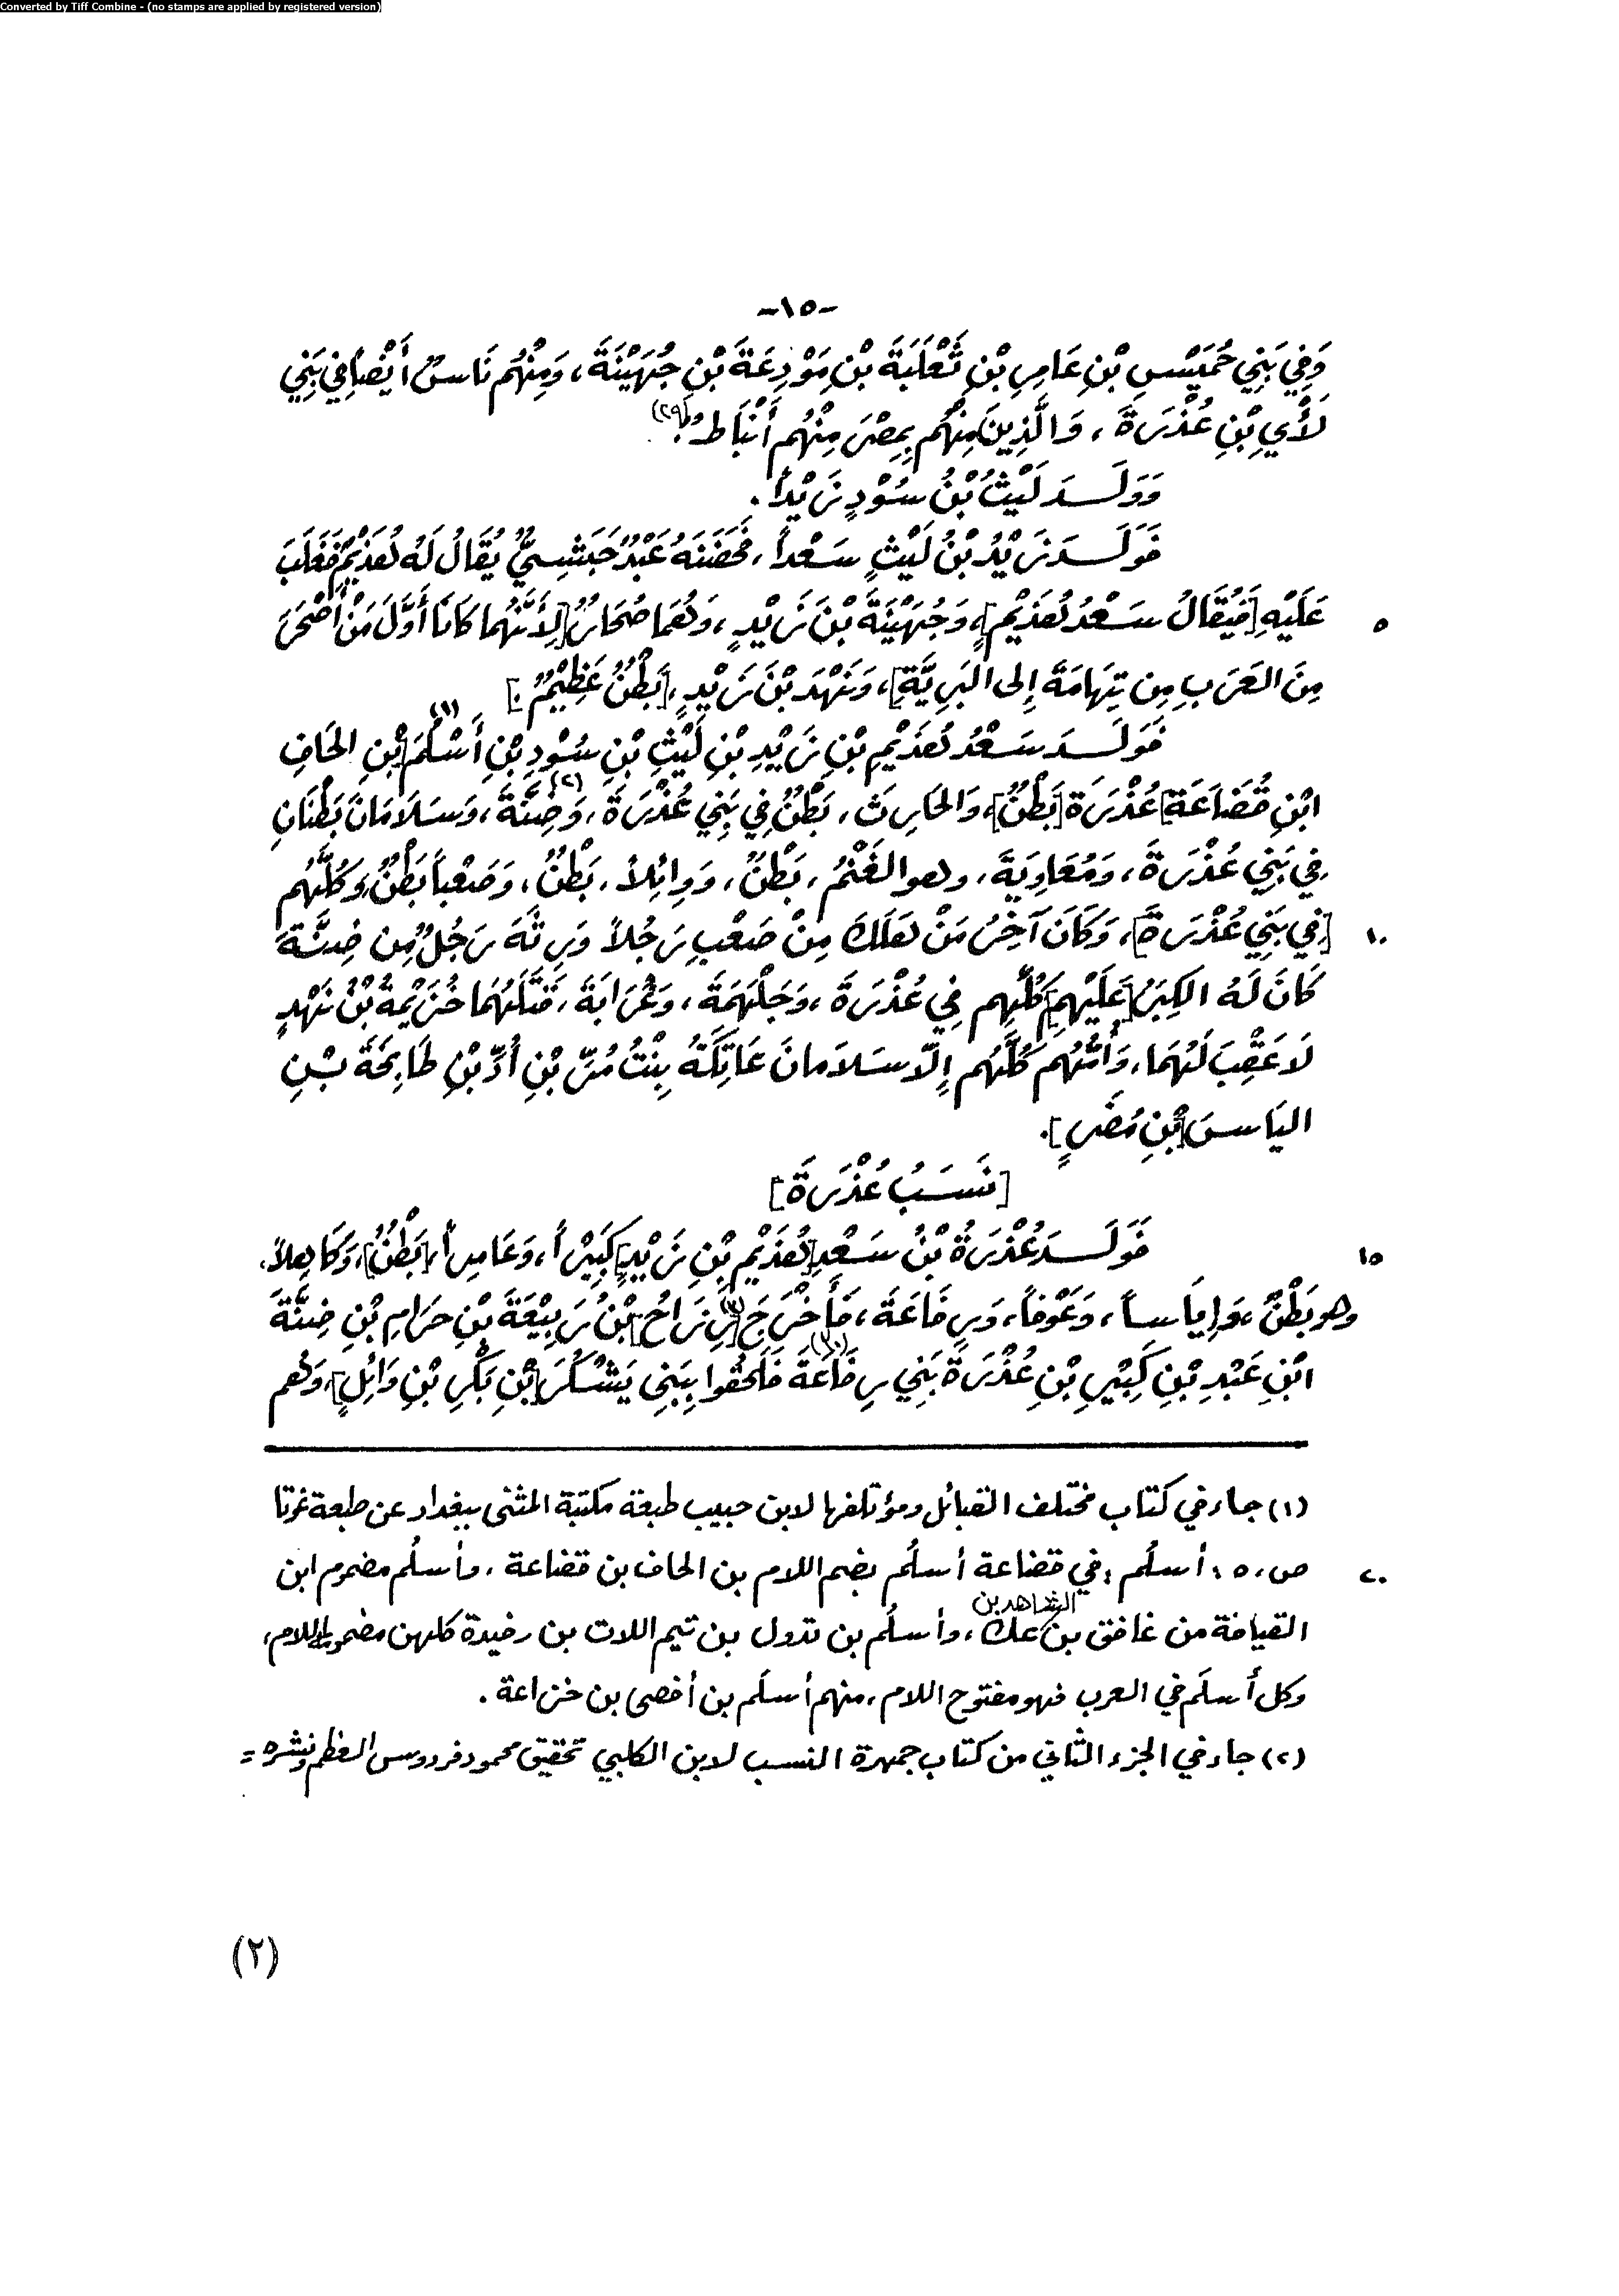 Converted by Tiff Combine - (no stamps are applied by registered version)
-١٥-
وَفِي بَنِي حُمَيْسِ بْنِ عَامِرِ بْنِ ثَعْلَبَةَ بْنِ مَوْدِعَةَ بْنِ جُهَيْنَةَ، وَمِنْهُم نَاسٌ أَيْضاً فِي بَنِي
لَأْيِ بْنِ عُذْرَةَ، وَالَّذِينَ مِنْهُم بِمِصْرَ مِنْهُم أَنْبَاطٌ.(٢٩)
وَوَلَـدَ لَيْثُ بْنُ سُوْدٍ زَيْداً.
فَوَلَـدَ زَيْدُ بْنُ لَيْثٍ سَعْداً، فَحَضَنَهُ عَبْدٌ حَبَشِيٌّ يُقَالُ لَهُ هُذَيْمٌ فَغَلَبَ
عَلَيْهِ [فَيُقَالُ سَعْدُ هُذَيْمٍ]، وَجُهَيْنَةَ بْنَ زَيْدٍ، وَهُمَا صُحَارٌ [لِأَنَّهُما كَانَا أَوَّلَ مَنْ أَصْحَرَ
٥
مِنَ العَرَبِ مِن تِهَامَةَ إِلى البَرِيَّةِ]، وَنَهْدَ بْنَ زَيْدٍ، [بَطْنٌ عَظِيْمٌ.]
فَوَلَـدَ سَعْدُ هُذَيْمِ بْنِ زَيْدِ بْنِ لَيْثِ بْنِ سُوْدِ بْنِ أَسْلُمَ(١) [بْنِ الحَافِ
ابْنِ قُضَاعَةَ] عُذْرَةَ [بَطْنٌ]، وَالحَارِثَ، بَطْنٌ فِي بَنِي عُذْرَةَ، وَضِنَّةَ(٢)، وَسَلَامَانَ بَطْنَانِ
فِي بَنِي عُذْرَةَ، وَمُعَاوِيَةَ، وهو الغَنْمُ، بَطْنٌ، وَوَائِلاً، بَطْنٌ، وَصَعْباً بَطْنٌ، وَكُلُّهُم
[فِي بَنِي عُذْرَةَ]، وَكَانَ آخِرُ مَنْ هَلَكَ مِنْ صَعْبٍ رَجُلاً وَرِثَهُ رَجُلٌ مِن ضِنَّةَ
١٠
كَانَ لَهُ الكِبَرُ [عَلَيْهِم] كُلِّهِم فِي عُذْرَةَ، وَجَلْهَمَةَ، وَعُرَابَةَ، قَتَلَهُمَا خُزَيْمَةُ بْنُ نَهْدٍ
لَا عَقِبَ لَهُمَا، وَأُمُّهُم كُلُّهُم إِلّا سَلَامانَ عَاتِكَةُ بِنْتُ مُرِّ بْنِ أُدِّ بْنِ طَابِخَةَ بْنِ
اليَاسَ [بْنِ مُضَرٍ].
[نَسَبُ عُذْرَةَ]
فَوَلَـدَ عُذْرَةُ بْنُ سَعْدِ [هُذَيْمِ بْنِ زَيْدٍ] كَبِيْراً، وَعَامِراً، [بَطْنٌ]، وَكَاهِلاً،
١٥
وهو بَطْنٌ، وَإِيَاساً، وَعَوْفاً، وَرِفَاعَةَ، فَأَخْرَجَ(٣) [رِزَاحُ] بْنُ رَبِيْعَةَ بْنِ حَرَامِ بْنِ ضِنَّةَ
ابْنِ عَبْدِ بْنِ كَبِيْرِ بْنِ عُذْرَةَ بَنِي رِفَاعَةَ(٣٠) فَلَحِقُوا بِبَنِي يَشْكُرَ [بْنِ بَكْرِ بْنِ وَائِلٍ]، وَهُم
(١) جاء في كتاب مختلف القبائل ومؤتلفها لابن حبيب طبعة مكتبة المثنى ببغداد عن طبعة غوتا
ص، ٥، أسلُم: في قضاعة أسلُم بضم اللام بن الحاف بن قضاعة، وأسلُم مضموم ابن
٢٠
القيافة من غافق بن الشاهد بن عك، وأسلُم بن تدول بن تيم اللات بن رفيدة كلهن مضمومات اللام،
وكل أسلَم في العرب فهو مفتوح اللام، منهم أسلَم بن أفصى بن خزاعة.
(٢) جاء في الجزء الثاني من كتاب جمهرة النسب لابن الكلبي تحقيق محمود فردوس العظم ونشره =
(٢)